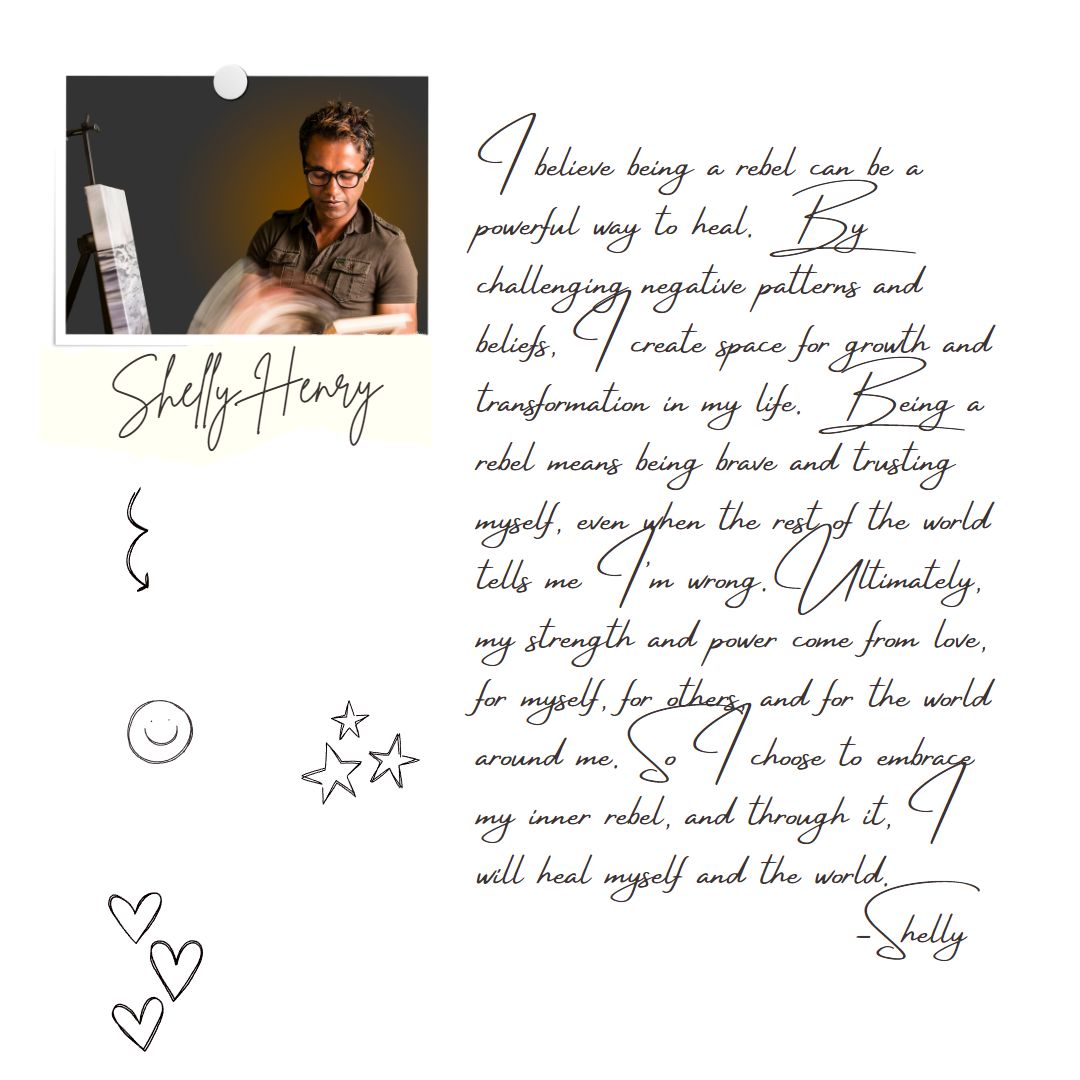 Shelly Henry
I believe being a rebel can be a
powerful way to heal. By
challenging negative patterns and
beliefs, I create space for growth and
transformation in my life. Being a
rebel means being brave and trusting
myself, even when the rest of the world
tells me I'm wrong. Ultimately,
my strength and power come from love,
for myself, for others, and for the world
around me. So I choose to embrace
my inner rebel, and through it, I
will heal myself and the world.
-Shelly